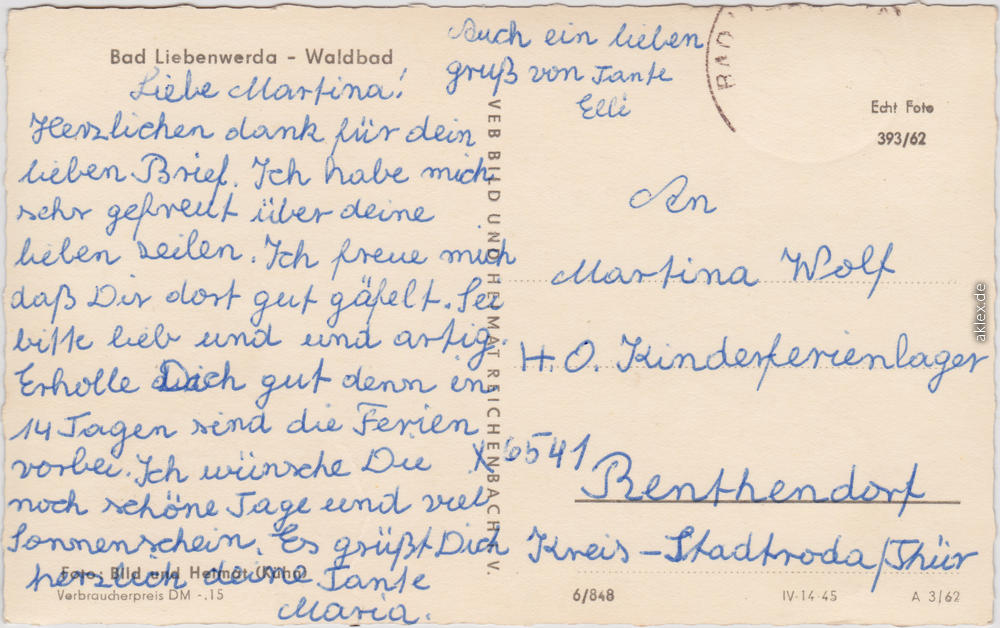 Bad Liebenwerda - Waldbad
Liebe Martina!
Herzlichen dank für dein
lieben Brief. Ich habe mich
sehr gefreut über deine
lieben zeilen. Ich freue mich
daß Dir dort gut gäfelt. Sei
bitte lieb und und artig.
Erholle Dich gut denn in
14 Tagen sind die Ferien
vorbei. Ich wünsche Die
noch schöne Tage und viel
Sonnenschein. Es grüßt Dich
herzlich deine Tante
Maria.
Auch ein lieben
gruß von Tante
Elli
Foto: Bild und Heimat (Kühn)
Verbraucherpreis DM -.15
VEB BILD UND HEIMAT REICHENBACH i. V.
BAD
Echt Foto
393/62
An
Martina Wolf
H.O. Kinderferienlager
X 6541
Renthendorf
Kreis - Stadtroda/Thür
6/848
IV-14-45
A 3/62
aklex.de